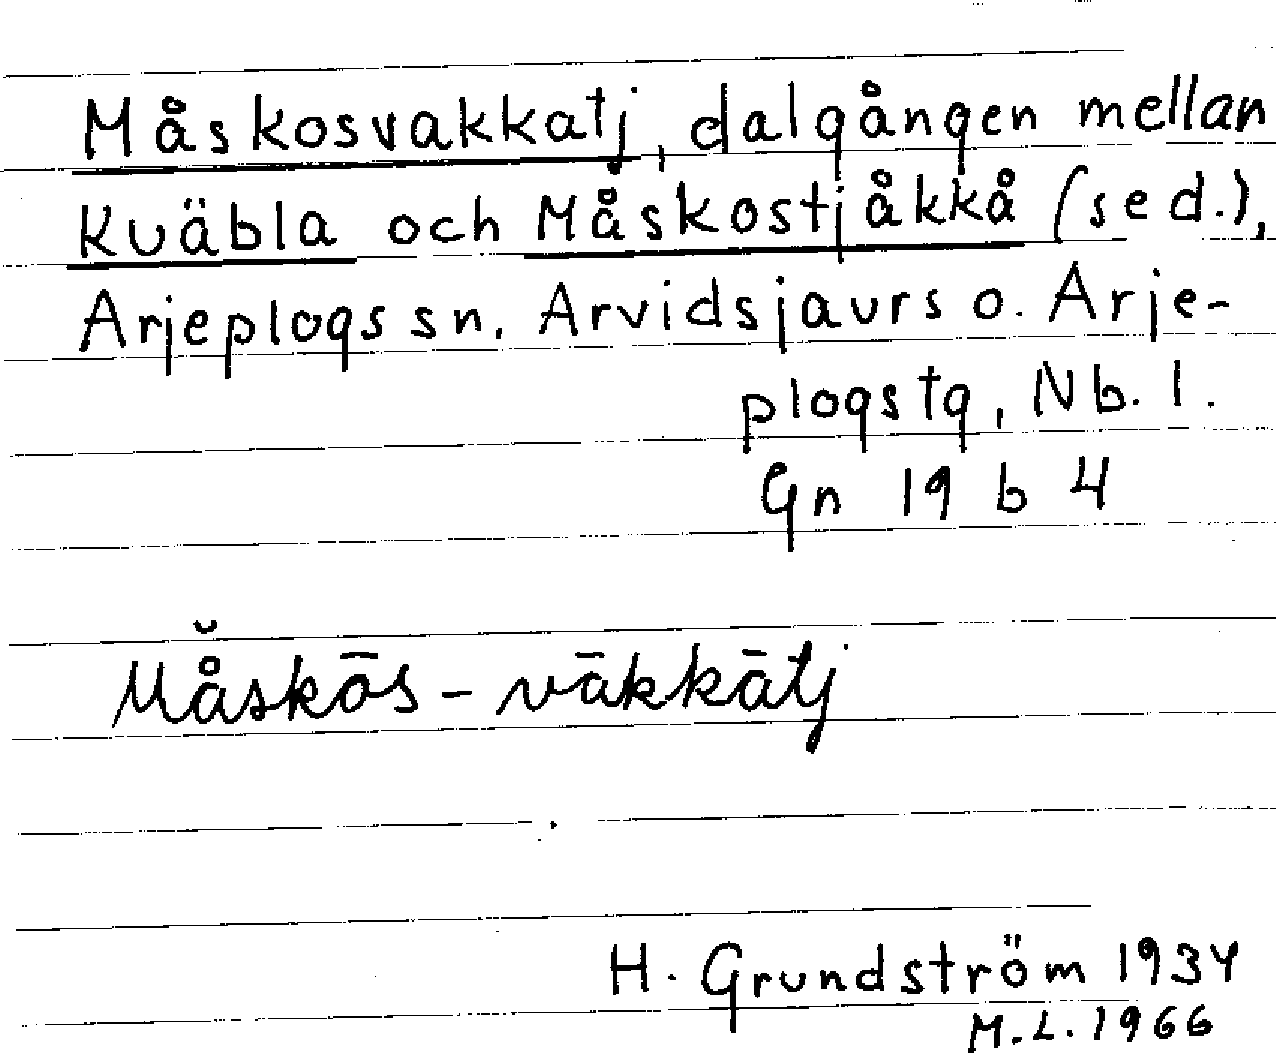 Måskosvakkatj, dalgången mellan
Kuäbla och Måskostjåkkå (sed.),
Arjeplogs sn. Arvidsjaurs o. Arje-
plogs tg, Nb. l.
Gn 19 b 4
Må̆skōs-vākkātj
H. Grundström 1934
M.L. 1966